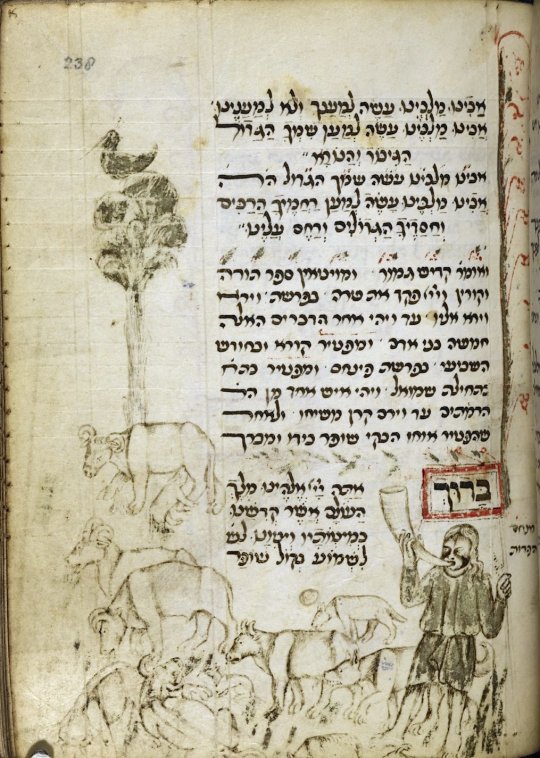 238
אבינו מלכינו עשה למענך ולא למענינו
אבינו מלכינו עשה למען שמך הגדול
הגיבור והנורא
אבינו מלכינו עשה שמך הגדול
אבינו מלכינו עשה למען רחמיך הרבים
וחסדיך הגדולים ורחם עלינו
ואומ׳ קדיש גמור ומוציאין ספר תורה
וקורין ויי׳ פקד את שרה בפרשה וירא
וירא אליו עד ויהי אחר הדברים האלה
חמשה בני אדם ומפטיר קורא ובחודש
השביעי בפרשה פינחס ומפטיר
תחילה שמואל ויהי איש אחד מן הר
הרמתים עד וירם קרן משיחו ולאחר
שהפטיר אוחז הבקי שופר בידו ומברך
ברוך
אתה יי׳ אלהינו מלך
העולם אשר קדשנו
במיצותיו וציונו לש
לשמוע בקול שופר